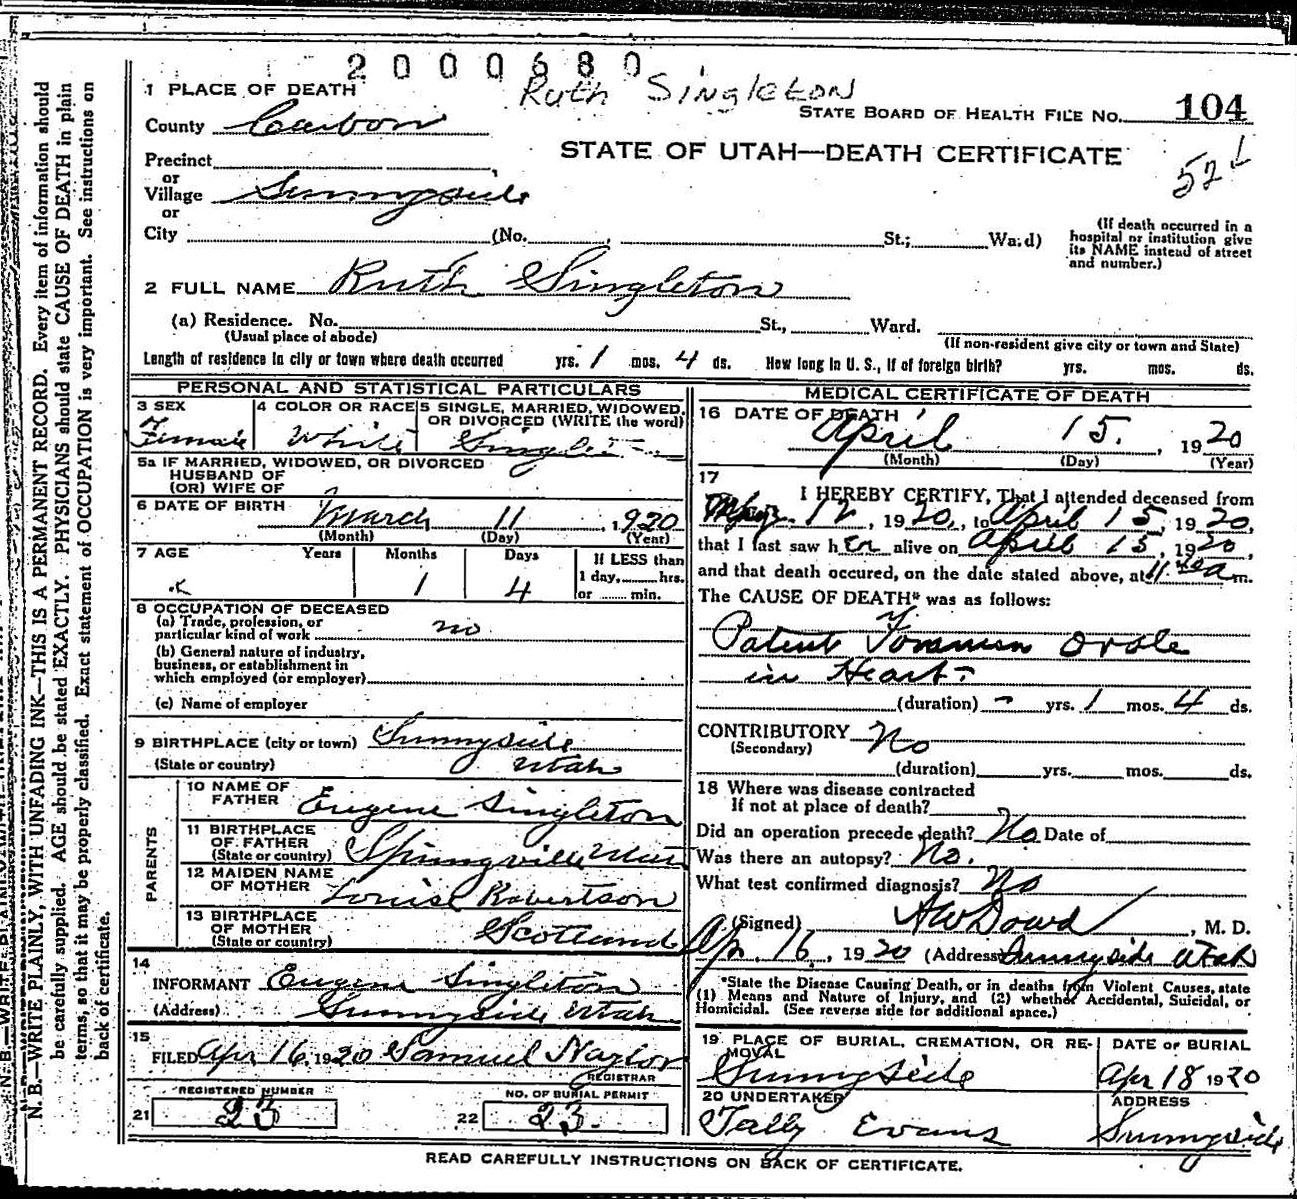 2000680
Ruth Singleton
1 PLACE OF DEATH
STATE BOARD OF HEALTH FILE No. 104
County Carbon
STATE OF UTAH—DEATH CERTIFICATE
52
Precinct
or
Village Sunnyside
or
City (No. , St.; Ward)
(If death occurred in a
hospital or institution give
its NAME instead of street
and number.)
2 FULL NAME Ruth Singleton
(a) Residence. No. St., Ward.
(Usual place of abode)
(If non-resident give city or town and State)
Length of residence in city or town where death occurred yrs. 1 mos. 4 ds. How long in U. S., if of foreign birth? yrs. mos. ds.
PERSONAL AND STATISTICAL PARTICULARS
3 SEX
Female
4 COLOR OR RACE
White
5 SINGLE, MARRIED, WIDOWED,
OR DIVORCED (WRITE the word)
5a IF MARRIED, WIDOWED, OR DIVORCED
HUSBAND OF
(OR) WIFE OF
6 DATE OF BIRTH March 11, 1920
(Month) (Day) (Year)
7 AGE Years Months Days If LESS than
1 day, hrs.
1 4 or min.
8 OCCUPATION OF DECEASED
(a) Trade, profession, or
particular kind of work no
(b) General nature of industry,
business, or establishment in
which employed (or employer)
(c) Name of employer
9 BIRTHPLACE (city or town) Sunnyside
(State or country) Utah
PARENTS
10 NAME OF
FATHER Eugene Singleton
11 BIRTHPLACE
OF FATHER
(State or country) Springville Utah
12 MAIDEN NAME
OF MOTHER Louise Robertson
13 BIRTHPLACE
OF MOTHER
(State or country) Scotland
14
INFORMANT Eugene Singleton
(Address) Sunnyside Utah
15
FILED Apr 16, 1920 Samuel Naylor
REGISTRAR
REGISTERED NUMBER
21 23
NO. OF BURIAL PERMIT
22 23.
MEDICAL CERTIFICATE OF DEATH
16 DATE OF DEATH
April 15, 1920
(Month) (Day) (Year)
17
I HEREBY CERTIFY, That I attended deceased from
12, 1920, to April 15, 1920,
that I last saw her alive on April 15, 1920,
and that death occured, on the date stated above, at 11 a m.
The CAUSE OF DEATH* was as follows:
Patent Foramen Ovale
in Heart
(duration) - yrs. 1 mos. 4 ds.
CONTRIBUTORY No
(Secondary)
(duration) yrs. mos. ds.
18 Where was disease contracted
If not at place of death?
Did an operation precede death? No Date of
Was there an autopsy? No.
What test confirmed diagnosis? No
(Signed) A W Dowd, M. D.
Apr. 16, 1920 (Address) Sunnyside Utah
*State the Disease Causing Death, or in deaths from Violent Causes, state
(1) Means and Nature of Injury, and (2) whether Accidental, Suicidal, or
Homicidal. (See reverse side for additional space.)
19 PLACE OF BURIAL, CREMATION, OR RE-
MOVAL
Sunnyside
DATE OF BURIAL
Apr 18 1920
20 UNDERTAKER
Tally Evans
ADDRESS
Sunnyside
READ CAREFULLY INSTRUCTIONS ON BACK OF CERTIFICATE.
N. B.—WRITE PLAINLY, WITH UNFADING INK—THIS IS A PERMANENT RECORD. Every item of information should
be carefully supplied. AGE should be stated EXACTLY. PHYSICIANS should state CAUSE OF DEATH in plain
terms, so that it may be properly classified. Exact statement of OCCUPATION is very important. See instructions on
back of certificate.